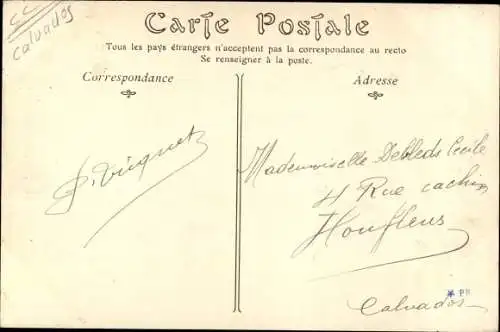 CC
Calvados
Carte Postale
Tous les pays étrangers n'acceptent pas la correspondance au recto
Se renseigner à la poste.
Correspondance
Adresse
Mademoiselle Debleds Cecile
4 Rue cachin
Honfleurs
Calvados